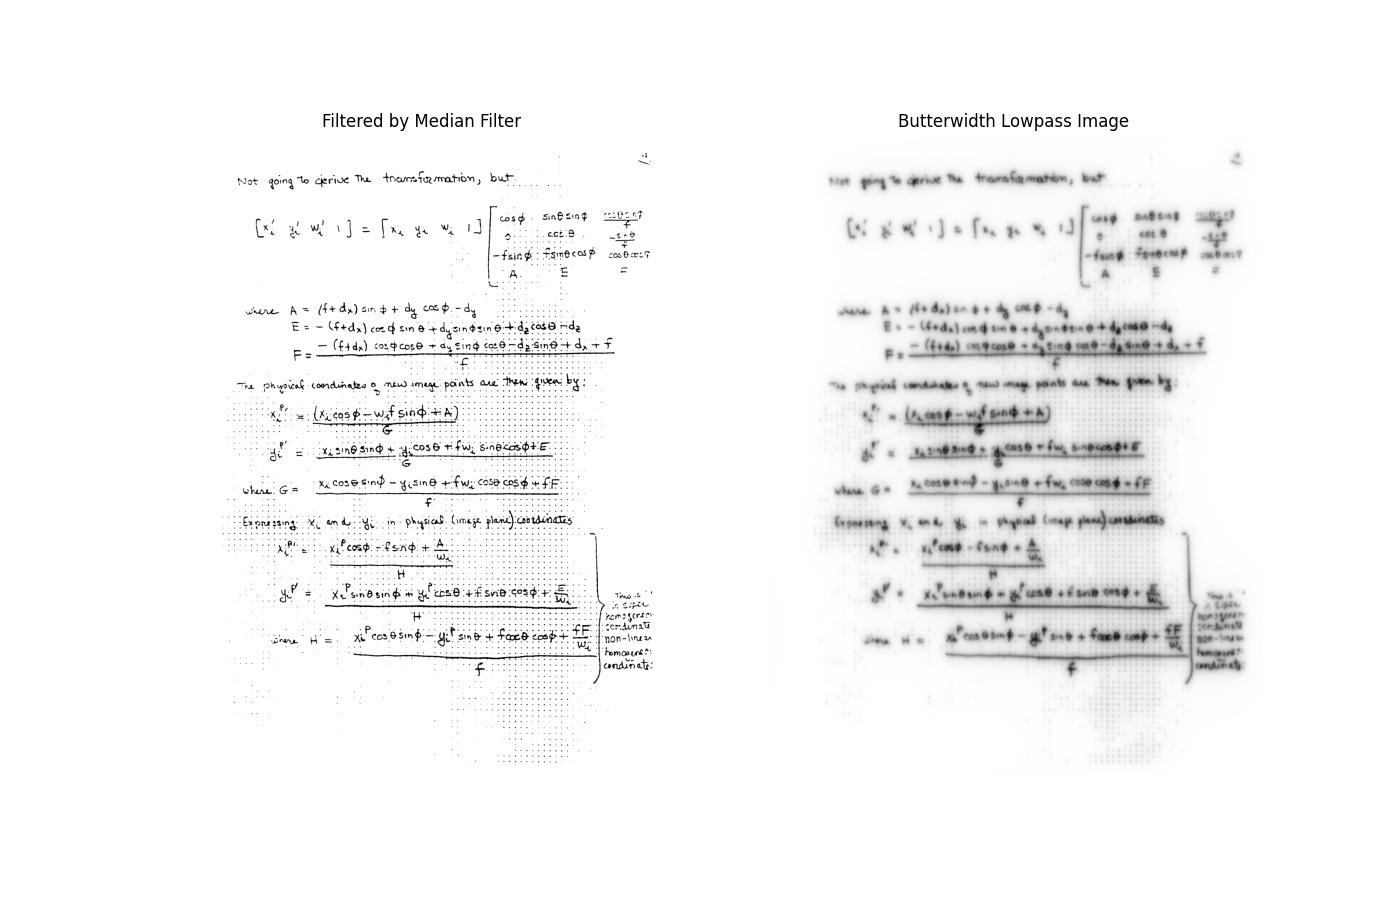 Filtered by Median Filter
Not going to derive the transformation, but
[xᵢ' yᵢ' wᵢ' 1] = [xᵢ yᵢ wᵢ 1] [cosϕ sinθsinϕ
0 cosθ -sinθ/f
-fsinϕ fsinθcosϕ cosθcosϕ
A E
where A = (f+dₓ) sinϕ + d_y cosϕ - d_y
E = - (f+dₓ) cosϕ sinθ + d_y sinϕ sinθ + d_z cosθ - d_z
F = (- (f+dₓ) cosϕcosθ + d_y sinϕ cosθ - d_z sinθ + dₓ + f) / f
The physical coordinates of new image points are then given by:
xᵢᴾ' = (xᵢcosϕ - wᵢf sinϕ + A) / G
yᵢᴾ' = (xᵢsinθsinϕ + yᵢcosθ + fwᵢ sinθcosϕ + E) / G
where G = (xᵢcosθsinϕ - yᵢsinθ + fwᵢ cosθcosϕ + fF) / f
Expressing xᵢ and yᵢ in physical (image plane) coordinates
xᵢᴾ' = (xᵢᴾcosϕ - fsinϕ + A/wᵢ) / H
yᵢᴾ' = (xᵢᴾsinθsinϕ + yᵢᴾcosθ + fsinθcosϕ + E/wᵢ) / H
where H = (xᵢᴾcosθsinϕ - yᵢᴾsinθ + fcosθcosϕ + fF/wᵢ) / f
This is
non-linear
Butterwidth Lowpass Image
Not going to derive the transformation, but
[xᵢ' yᵢ' wᵢ' 1] = [xᵢ yᵢ wᵢ 1] [cosϕ sinθsinϕ
0 cosθ -sinθ/f
-fsinϕ fsinθcosϕ cosθcosϕ
A E
where A = (f+dₓ) sinϕ + d_y cosϕ - d_y
E = - (f+dₓ) cosϕ sinθ + d_y sinϕ sinθ + d_z cosθ - d_z
F = (- (f+dₓ) cosϕcosθ + d_y sinϕ cosθ - d_z sinθ + dₓ + f) / f
The physical coordinates of new image points are then given by:
xᵢᴾ' = (xᵢcosϕ - wᵢf sinϕ + A) / G
yᵢᴾ' = (xᵢsinθsinϕ + yᵢcosθ + fwᵢ sinθcosϕ + E) / G
where G = (xᵢcosθsinϕ - yᵢsinθ + fwᵢ cosθcosϕ + fF) / f
Expressing xᵢ and yᵢ in physical (image plane) coordinates
xᵢᴾ' = (xᵢᴾcosϕ - fsinϕ + A/wᵢ) / H
yᵢᴾ' = (xᵢᴾsinθsinϕ + yᵢᴾcosθ + fsinθcosϕ + E/wᵢ) / H
where H = (xᵢᴾcosθsinϕ - yᵢᴾsinθ + fcosθcosϕ + fF/wᵢ) / f
This is
non-linear